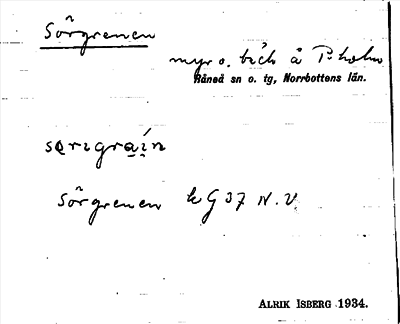 Sörgrenen
myr o. bäck å P:holm
Råneå sn o. tg, Norrbottens län.
sǫrıgrạı́ṇ
Sörgrenen kG 37 N.V.
ALRIK ISBERG 1934.